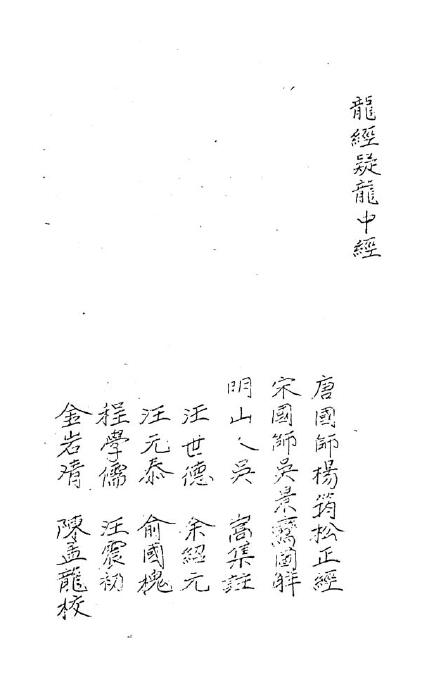 龍經疑龍中經
唐國師楊筠松正經
宋國師吳景鸞圖解
明山人吳 嵩集註
汪世德 余紹元
汪元泰 俞國槐
程學儒 汪震初
金岩清 陳孟龍校